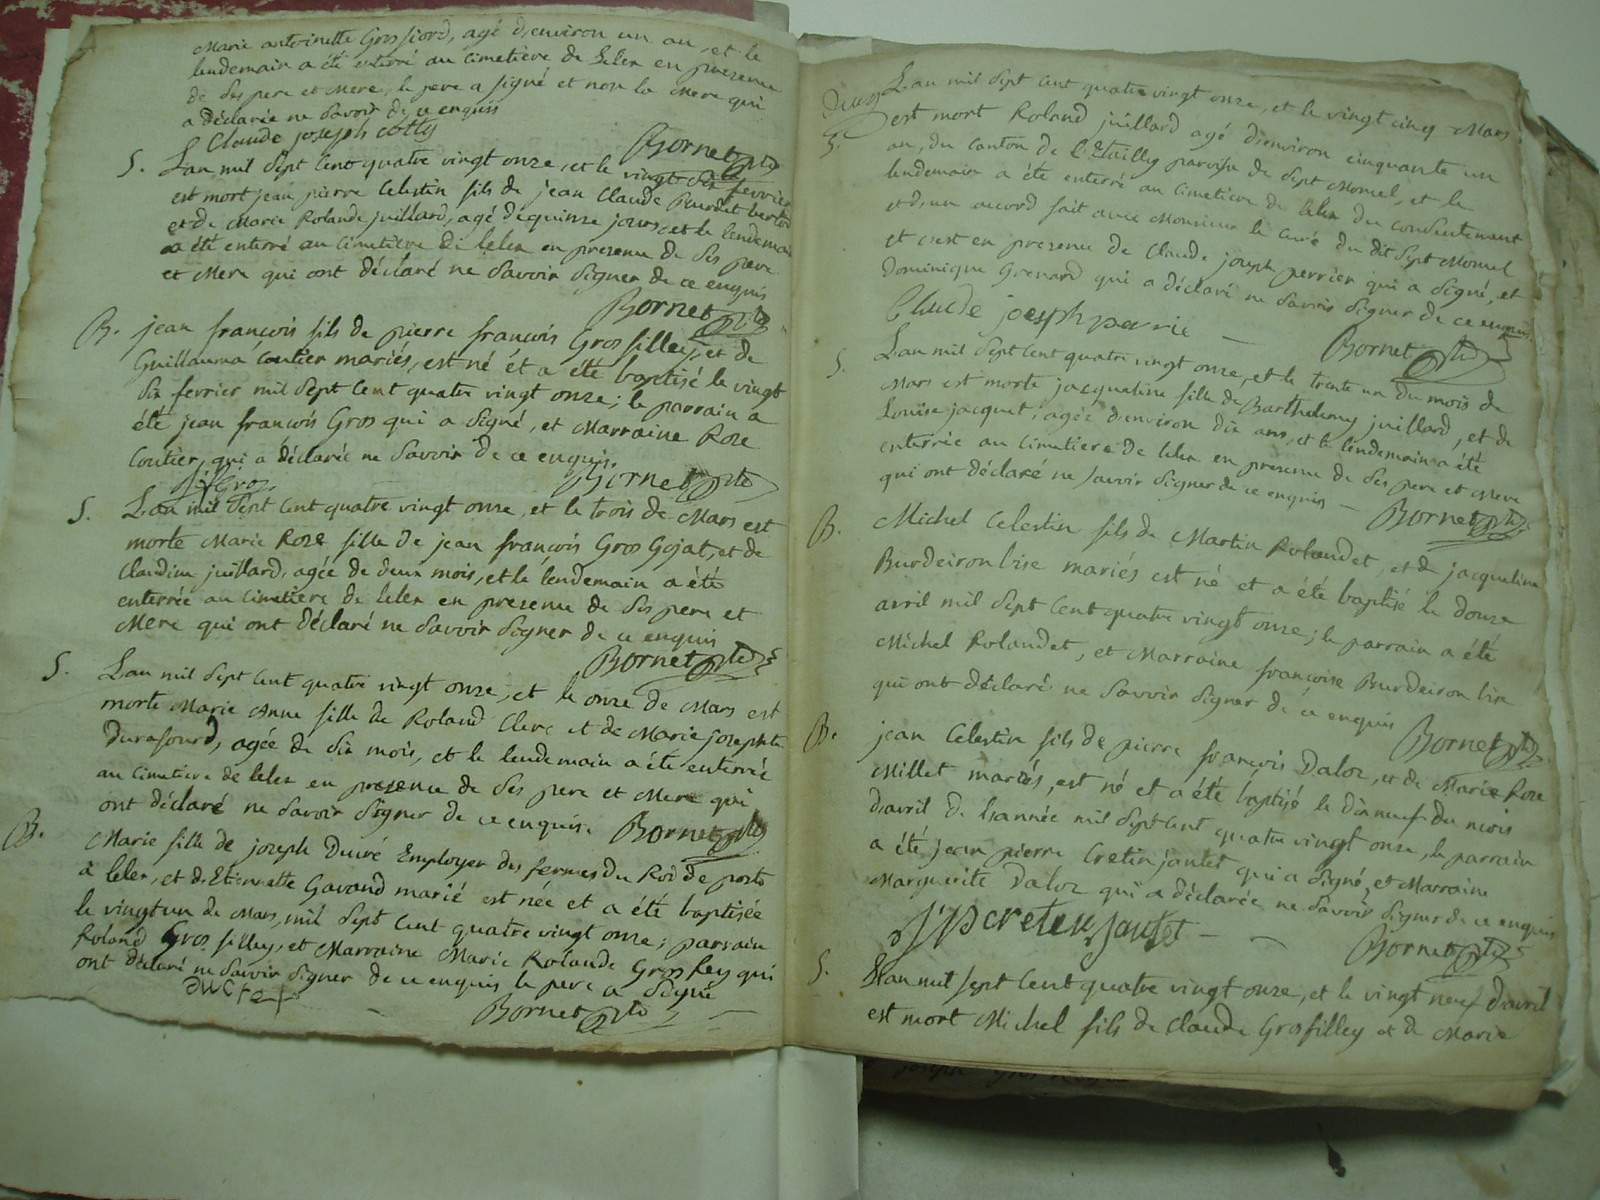 Marie antoinette Grosfiord, agé d'environ un an, et le
lendemain a été enterré au cimetière de lelex en presence
de ses pere et Mere, le pere a signé et non la Mere qui
a déclarée ne Savoir de ce enquis
Claude joseph cotty
Bornet ptre
S. L'an mil Sept Cent quatre vingt onze, et le vingt six fevrier
est mort jean pierre Celestin fils de jean Claude Burdet
et de Marie Rolande juillard, agé de quinze jours, et le lendemain
a été enterré au cimetière de lelex en presence de Ses pere
et Mere qui ont déclaré ne Savoir Signer de ce enquis
Bornet ptre
B. jean françois fils de pierre françois Grosfilley, et de
Guillauma Coutier mariés, est né et a été baptisé le vingt
Six fevrier mil Sept Cent quatre vingt onze; le parrain a
été jean françois Gros qui a Signé, et Marraine Roze
Coutier, qui a déclarée ne Savoir de ce enquis.
j f Gros
Bornet ptre
S. L'an mil Sept Cent quatre vingt onze, et le trois de Mars est
morte Marie Roze fille de jean françois Gros Gojat, et de
Claudine juillard, agée de deux mois, et le lendemain a été
enterrée au cimetière de lelex en presence de Ses pere et
Mere qui ont déclaré ne Savoir Signer de ce enquis
Bornet ptre
S. L'an mil Sept Cent quatre vingt onze, et le onze de Mars est
morte Marie Anne fille de Roland Clerc et de Marie josephte
Durafourd, agée de Six mois, et le lendemain a été enterrée
au Cimetière de lelex en presence de Ses pere et Mere qui
ont déclaré ne Savoir Signer de ce enquis. Bornet ptre
B. Marie fille de joseph Ducré Employer des fermes du Roi de poste
à lelex, et d'Etiennette Gavand marié est née et a été baptisée
le vingt un de Mars, mil Sept Cent quatre vingt onze; parrain
Roland Grosfilley, et Marraine Marie Rolande Grosfley qui
ont déclaré ne Savoir Signer de ce enquis le pere a Signé
ducre
Bornet ptre
L'an mil Sept Cent quatre vingt onze, et le vingt cinq Mars
S. est mort Roland juillard agé d'environ cinquante un
an, du Canton de paroisse de Sept Moncel, et le
lendemain a été enterré au Cimetière de lelex du Consentement
et d'un accord fait avec Monsieur le curé du dit Sept Moncel
et c'est en presence de Claude joseph perrier qui a Signé, et
Dominique Grenard qui a déclaré ne Savoir Signer de ce enquis
Claude joesph perrie
Bornet ptre
S. L'an mil Sept Cent quatre vingt onze, et le trente un du mois de
Mars est morte jacqueline fille de Barthelemy juillard, et de
Louise jacquet, agée d'environ dix ans, et le lendemain a été
enterrée au cimetière de lelex en presence de Ses pere et Mere
qui ont déclaré ne Savoir Signer de ce enquis —
Bornet ptre
B. Michel Celestin fils de Martin Rolandet, et de jacqueline
Burdeiron bise mariés est né et a été baptisé le douze
avril mil Sept Cent quatre vingt onze; le parrain a été
Michel Rolandet, et Marraine françoise Burdeiron bise
qui ont déclaré ne Savoir Signer de ce enquis
Bornet ptre
B. jean Celestin fils de pierre françois Daloz, et de Marie Roze
Millet mariés, est né et a été baptisé le dixneuf du mois
d'avril de l'année mil Sept Cent quatre vingt onze, le parrain
a été jean pierre Cretin jautet qui a Signé, et Marraine
Marguerite Daloz qui a déclarée ne Savoir Signer de ce enquis
Bornet ptre
S. L'an mil sept Cent quatre vingt onze, et le vingt neuf d'avril
est mort Michel fils de Claude Grosfilley et de Marie